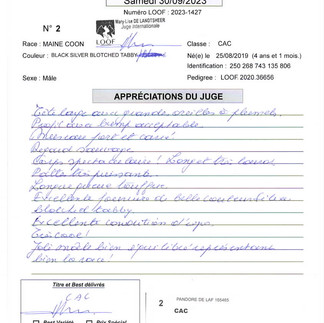 Samedi 30/09/2023
Numéro LOOF : 2023-1427
N° 2
LOOF
Mary Lise DE LANDTSHEER
Juge internationale
Race : MAINE COON
Classe : CAC
Couleur : BLACK SILVER BLOTCHED TABBY
Né(e) le : 25/08/2019 (4 ans et 1 mois.)
Identification : 250 268 743 135 806
Sexe : Mâle
Pedigree : LOOF 2020.36656
APPRÉCIATIONS DU JUGE
Tête large avec grandes oreilles à plumets
Profil avec acceptable
Museau fort et carré
Regard sauvage
Corps spectaculaire ! Long et très lourd
Pattes très puissantes
Longue queue touffue
Excellente fourrure de belle
blotched tabby
Excellente condition d'expo
Très
Joli mâle bien équilibré représentant
bien la race !
Titre et Best délivrés
CAC
Best Variété
Prix Spécial
2
PANDORE DE LAF 165460
CAC